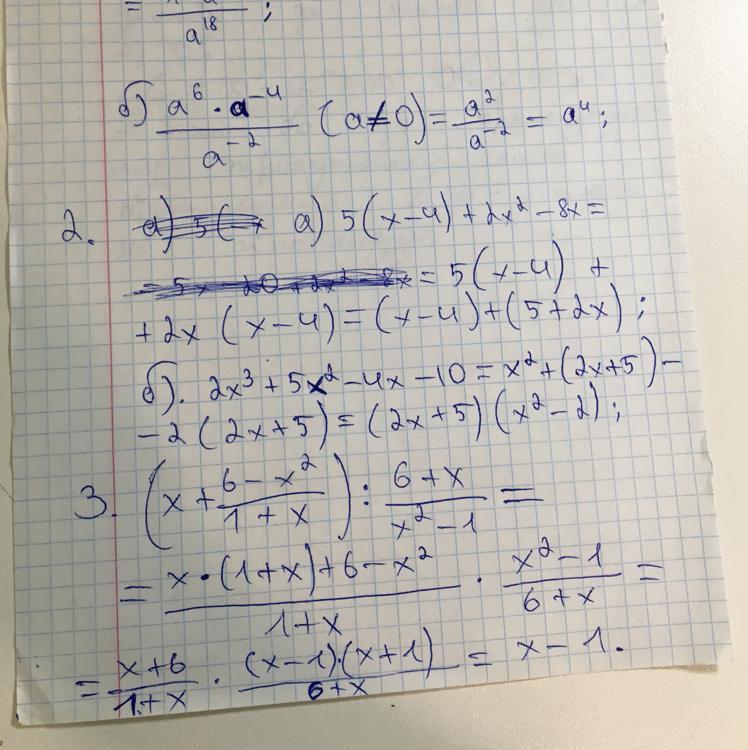 = / a¹⁸ ;
б) a⁶ · a⁻⁴ / a⁻² (a≠0) = a² / a⁻² = a⁴;
2. а) 5(x−4)+2x²−8x=
= 5(x−4) +
+2x (x−4)=(x−4)+(5+2x);
б). 2x³+5x²−4x−10=x²+(2x+5)−
−2(2x+5)=(2x+5)(x²−2);
3. (x + 6−x² / 1+x) : 6+x / x²−1 =
= x·(1+x)+6−x² / 1+x · x²−1 / 6+x =
= x+6 / 1+x · (x−1)·(x+1) / 6+x = x−1.